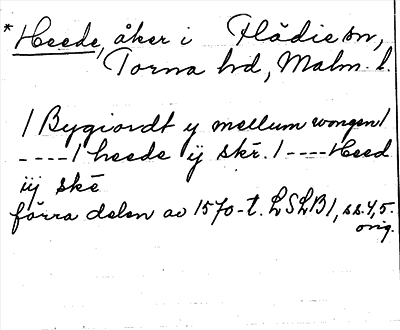 * Heede, åker i Flädie sn,
Torna hd, Malm. l.
/ Bygiordt y mellum wongen /
---- / heede ij skr. / ---- Heed
iij skē
förra delen av 1570-t. LSLB 1, ss. 4, 5.
orig.